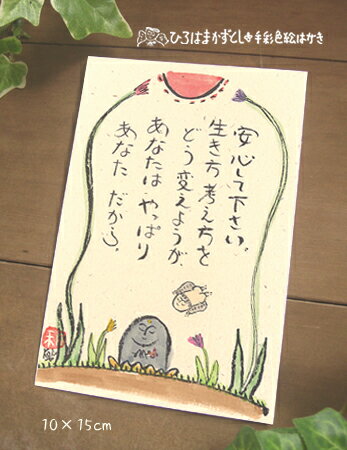 ひろはまかずとし手彩色絵はがき
安心して下さい。
生き方 考え方を
どう変えようが
あなたは やっぱり
あなた だから。
10×15cm